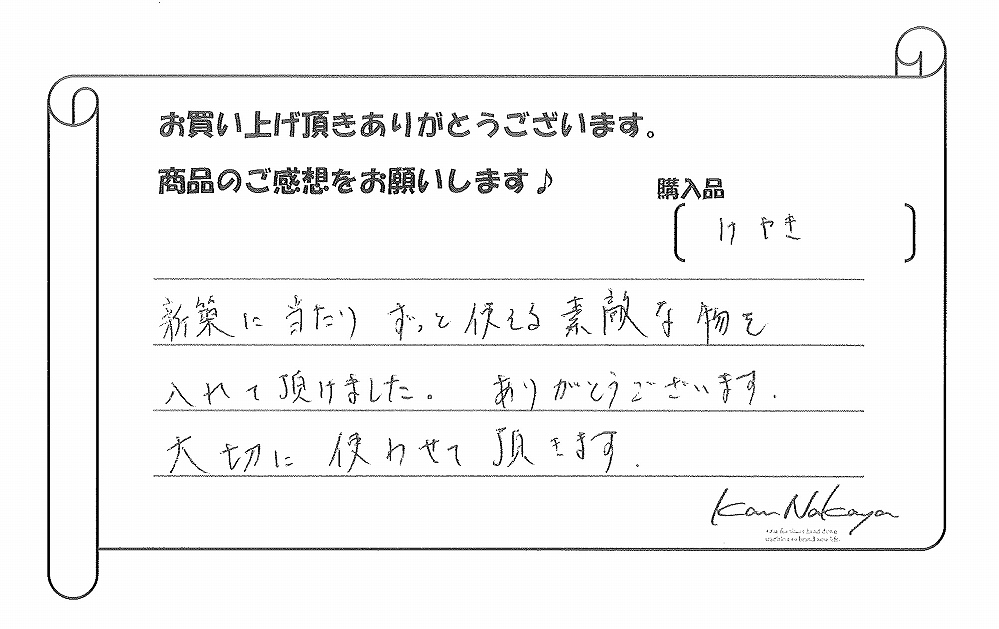 お買い上げ頂きありがとうございます。
商品のご感想をお願いします♪
購入品
けやき
新築に当たり ずっと使える素敵な物を
入れて頂けました。 ありがとうございます.
大切に 使わせて 頂きます.
Kan Nakaya